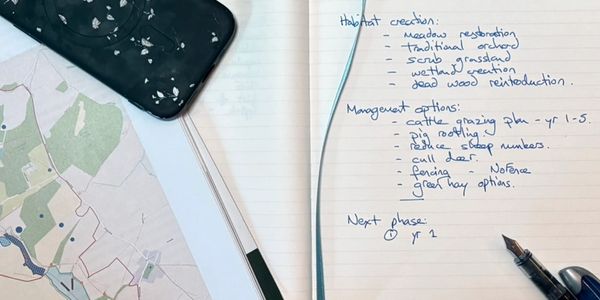 Habitat creation:
- meadow restoration
- traditional orchard
- scrub grassland
- wetland creation
- dead wood reintroduction.
Management options:
- cattle grazing plan - yr 1-5.
- pig rootling
- reduce sheep numbers.
- cull deer.
- fencing - NoFence
- green hay options.
Next phase:
① yr 1